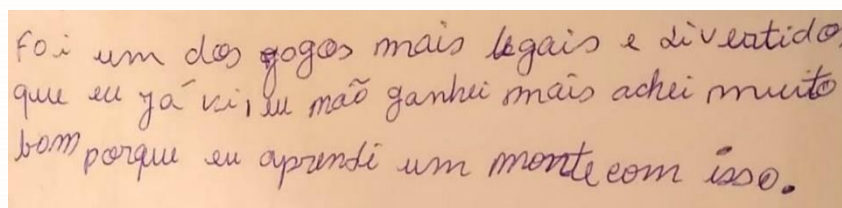 Foi um dos gogos mais legais e divertido
que eu já vi, eu mão ganhei mais achei muito
bom porque eu aprendi um monte com isso.